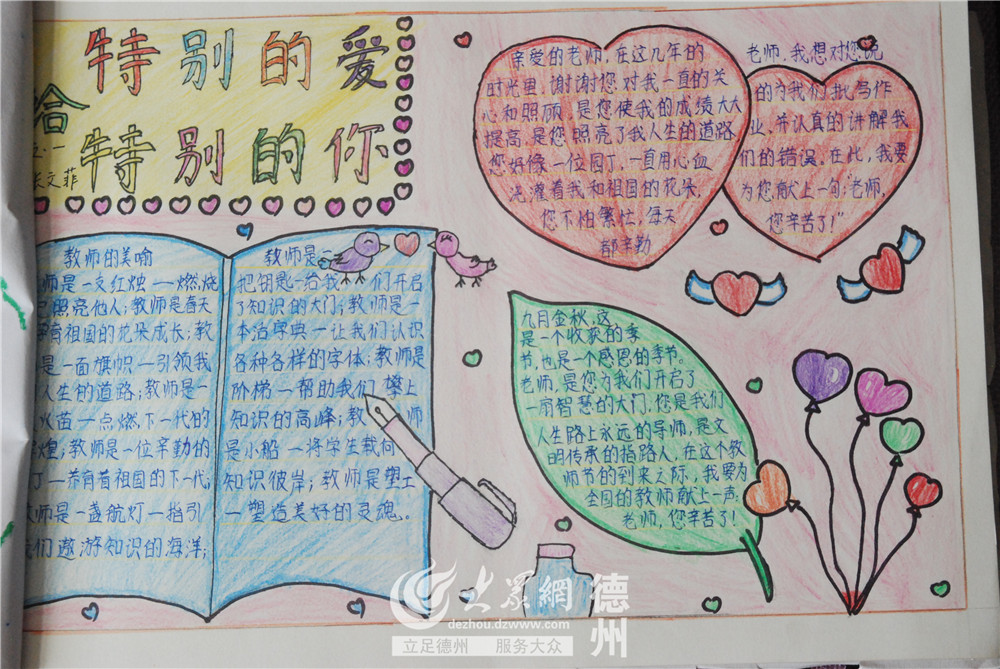 特别的爱
给
特别的你
五·一
张文菲
教师的美喻
师是一支红烛——燃烧
照亮他人；教师是春天
育着祖国的花朵成长；教
是一面旗帜—引领我
人生的道路；教师是一
火苗—点燃下一代的
辉煌；教师是一位辛勤的
丁—养育着祖国的下一代；
教师是一盏航灯—指引
我们遨游知识的海洋；
教师是一
把钥匙—给我们开启
了知识的大门；教师是一
本活字典—让我们认识
各种各样的字体；教师是
阶梯—帮助我们攀上
知识的高峰；教师
是小船—将学生载向
知识彼岸；教师是塑工
—塑造美好的灵魂。
亲爱的老师，在这几年的
时光里，谢谢您对我一直的关
心和照顾，是您使我的成绩大大
提高，是您照亮了我人生的道路
您好像一位园丁，一直用心血
浇灌着我和祖国的花朵，
您不怕繁忙，每天
都辛勤
老师，我想对您说
的为我们批写作
业，并认真的讲解我
们的错误，在此，我要
为您献上一句：“老师，
您辛苦了！”
九月金秋，这
是一个收获的季
节，也是一个感恩的季节。
老师，是您为我们开启了
一扇智慧的大门，您是我们
人生路上永远的导师，是文
明传承的指路人，在这个教
师节的到来之际，我要为
全国的教师献上一声：
老师，您辛苦了！
大众網 德州
dezhou.dzwww.com
立足德州 服务大众